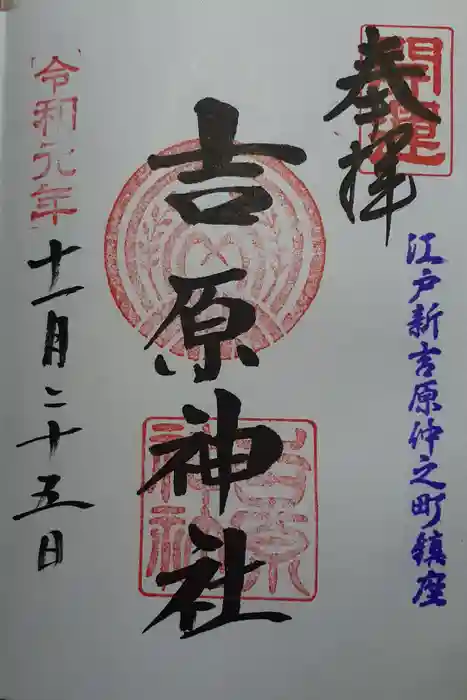 開運
奉拝
江戸新吉原仲之町鎮座
吉原神社
吉原神社
令和元年
十一月二十五日